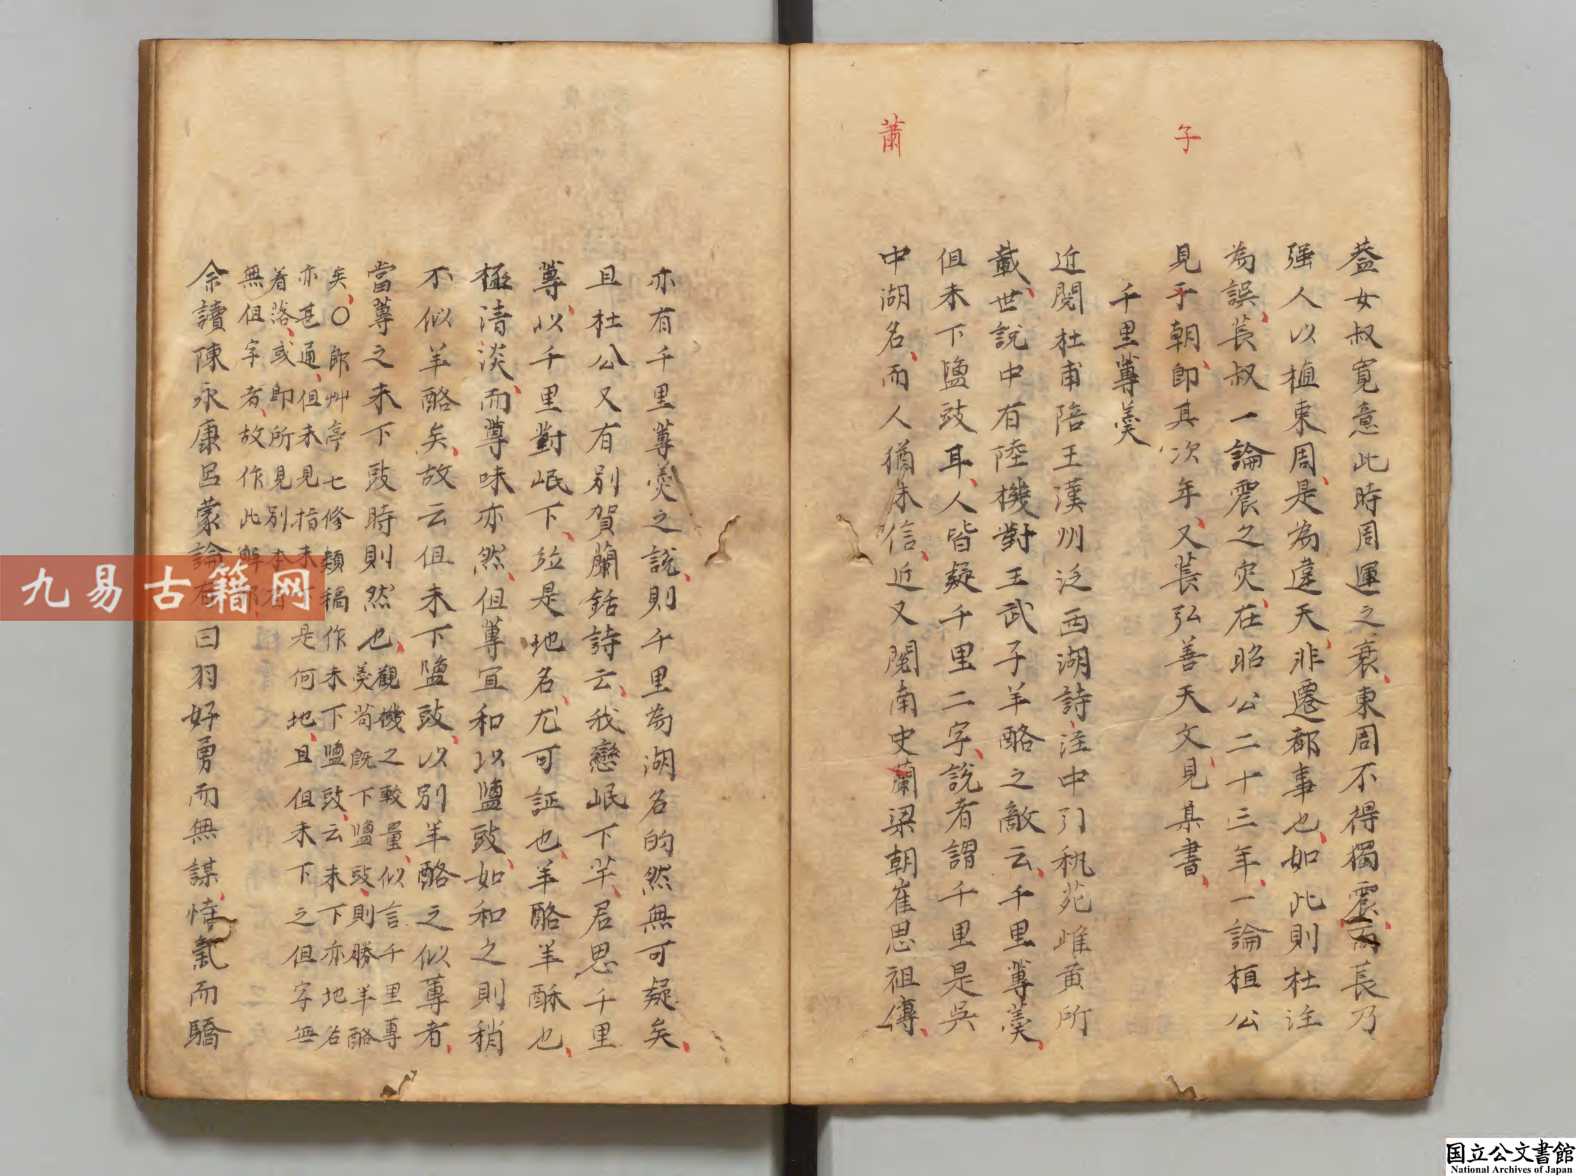 子
蕭
葢女叔寛意此時周運之衰東周不得獨震而萇乃
强人以植東周是為違天非遷都事也如此則杜注
為誤萇叔一論震之灾在昭公二十三年一論桓公
見于朝即其次年又萇弘善天文見某書
千里蓴羹
近閱杜甫陪王漢州泛西湖詩注中引秇苑雌黄所
載世說中有陸機對王武子羊酪之敵云千里蓴羹
但未下鹽豉耳人皆疑千里二字說者謂千里是吳
中湖名而人猶未信近又閱南史蘭梁朝崔思祖傳
亦有千里蓴羹之說則千里為湖名的然無可疑矣
且杜公又有別賀蘭銛詩云我戀岷下芋君思千里
蓴以千里對岷下竝是地名尤可証也羊酪羊酥也
極清淡而蓴味亦然但蓴宜和以鹽豉如和之則稍
不似羊酪矣故云但未下鹽豉以別羊酪之似蓴者
當蓴之未下豉時則然也觀機之較量似言千里蓴
羹苟既下鹽豉則勝羊酪
矣〇郎艸亭七修類稿作未下鹽豉云未下亦地名
亦甚通但未見指未是何地且但未下之但字無
着落或即所見別本
無但字者故作此解耶
余讀陳永康呂蒙論有曰羽好勇而無謀恃氣而驕
九易古籍网
国立公文書館
National Archives of Japan